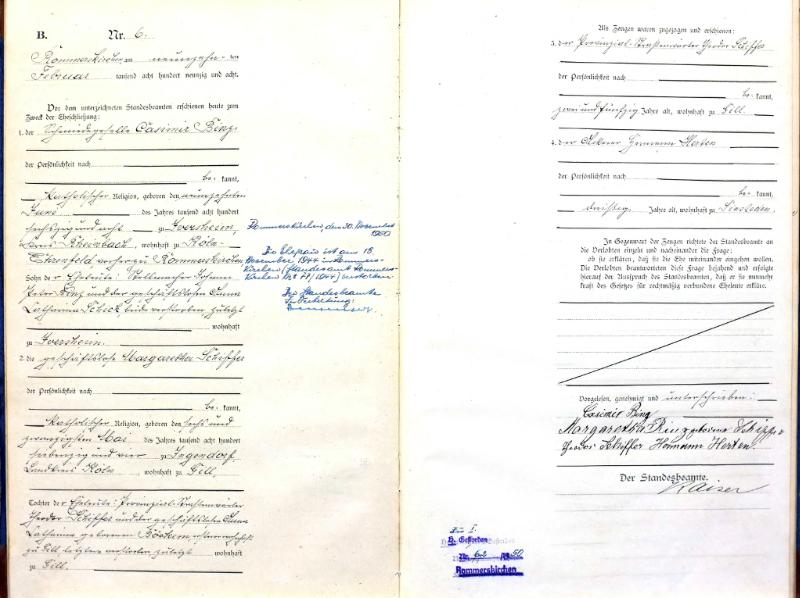 B. Nr. 6.
Rommerskirchen am neunzehnten
Februar tausend acht hundert neunzig und acht.
Vor dem unterzeichneten Standesbeamten erschienen heute zum
Zweck der Eheschließung:
1. der Schmiedegeselle Casimir Binz
der Persönlichkeit nach
be kannt,
katholischer Religion, geboren den neunzehnten
Juni des Jahres tausend acht hundert
sechszig und acht zu Iversheim
Kreis Rheinbach, wohnhaft zu Köln-
Ehrenfeld, vorher zu Rommerskirchen
Sohn der Eheleute: Johann
Peter Binz und der geschäftslosen Anna
Catharina Schick, beide verstorben, zuletzt
wohnhaft
zu Iversheim.
2. die geschäftslose Margaretha Schiffer
der Persönlichkeit nach
be kannt,
katholischer Religion, geboren den sechs und
zwanzigsten Mai des Jahres tausend acht hundert
siebenzig und vier zu Ingendorf,
Landkreis Köln, wohnhaft zu Gill,
Tochter der Eheleute: Provinzial-Straßenwärter
Theodor Schiffer und der geschäftslosen Anna
Catharina geborenen wohnhaft
zu Gill, letztere verstorben zuletzt wohnhaft
zu Gill.
Rommerskirchen, den 30. Dezember
Der Ehemann ist am 18.
Dezember 1944 in Rommers-
kirchen (Standesamt Rommers-
kirchen Nr. /1944) verstorben.
Der Standesbeamte
In Vertretung:
Als Zeugen waren zugezogen und erschienen:
3. der Provinzial-Straßenwärter Theodor Schiffer
der Persönlichkeit nach
be kannt,
zwei und fünfzig Jahre alt, wohnhaft zu Gill.
4. der Ackerer Hermann Herten
der Persönlichkeit nach
be kannt,
dreißig Jahre alt, wohnhaft zu
In Gegenwart der Zeugen richtete der Standesbeamte an
die Verlobten einzeln und nacheinander die Frage:
ob sie erklären, daß sie die Ehe miteinander eingehen wollen.
Die Verlobten beantworteten diese Frage bejahend und erfolgte
hierauf der Ausspruch des Standesbeamten, daß er sie nunmehr
kraft des Gesetzes für rechtmäßig verbundene Eheleute erkläre.
Vorgelesen, genehmigt und unterschrieben:
Casimir Binz
Margaretha Binz geborene Schiffer
Theodor Schiffer Hermann Herten
Der Standesbeamte.
Kaiser
Gestorben
Nr. 62
Rommerskirchen